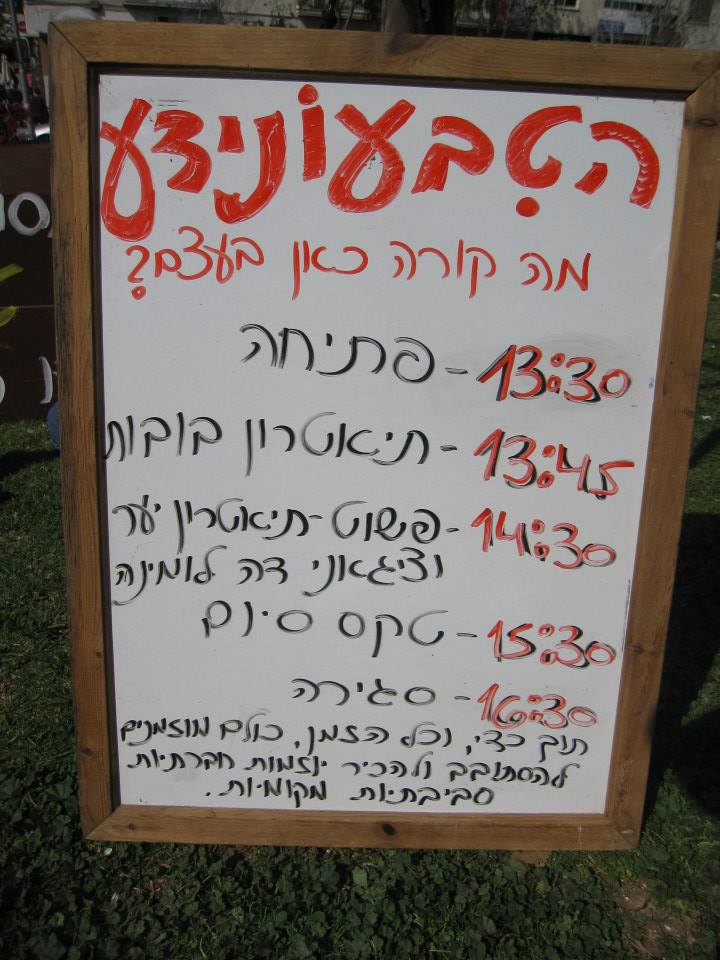 הטִבעוֹנִידע
מה קורה כאן בעצם?
13:30 - פתיחה
13:45 - תיאטרון בובות
14:30 - פשוט - תיאטרון יער
וציגאני דה לומינה
15:30 - טקס סיום
16:30 - סגירה
תוך כדי, וכל הזמן, כולם מוזמנים
להסתובב ולהכיר יוזמות חברתיות
סביבתיות מקומיות.